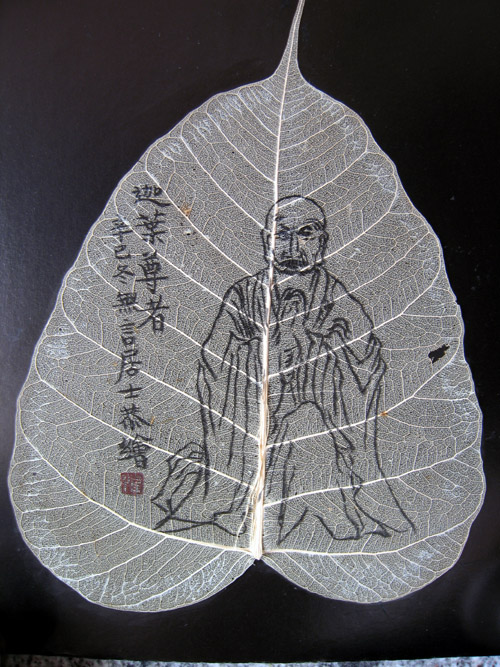 迦葉尊者
辛巳冬無言居士恭繪